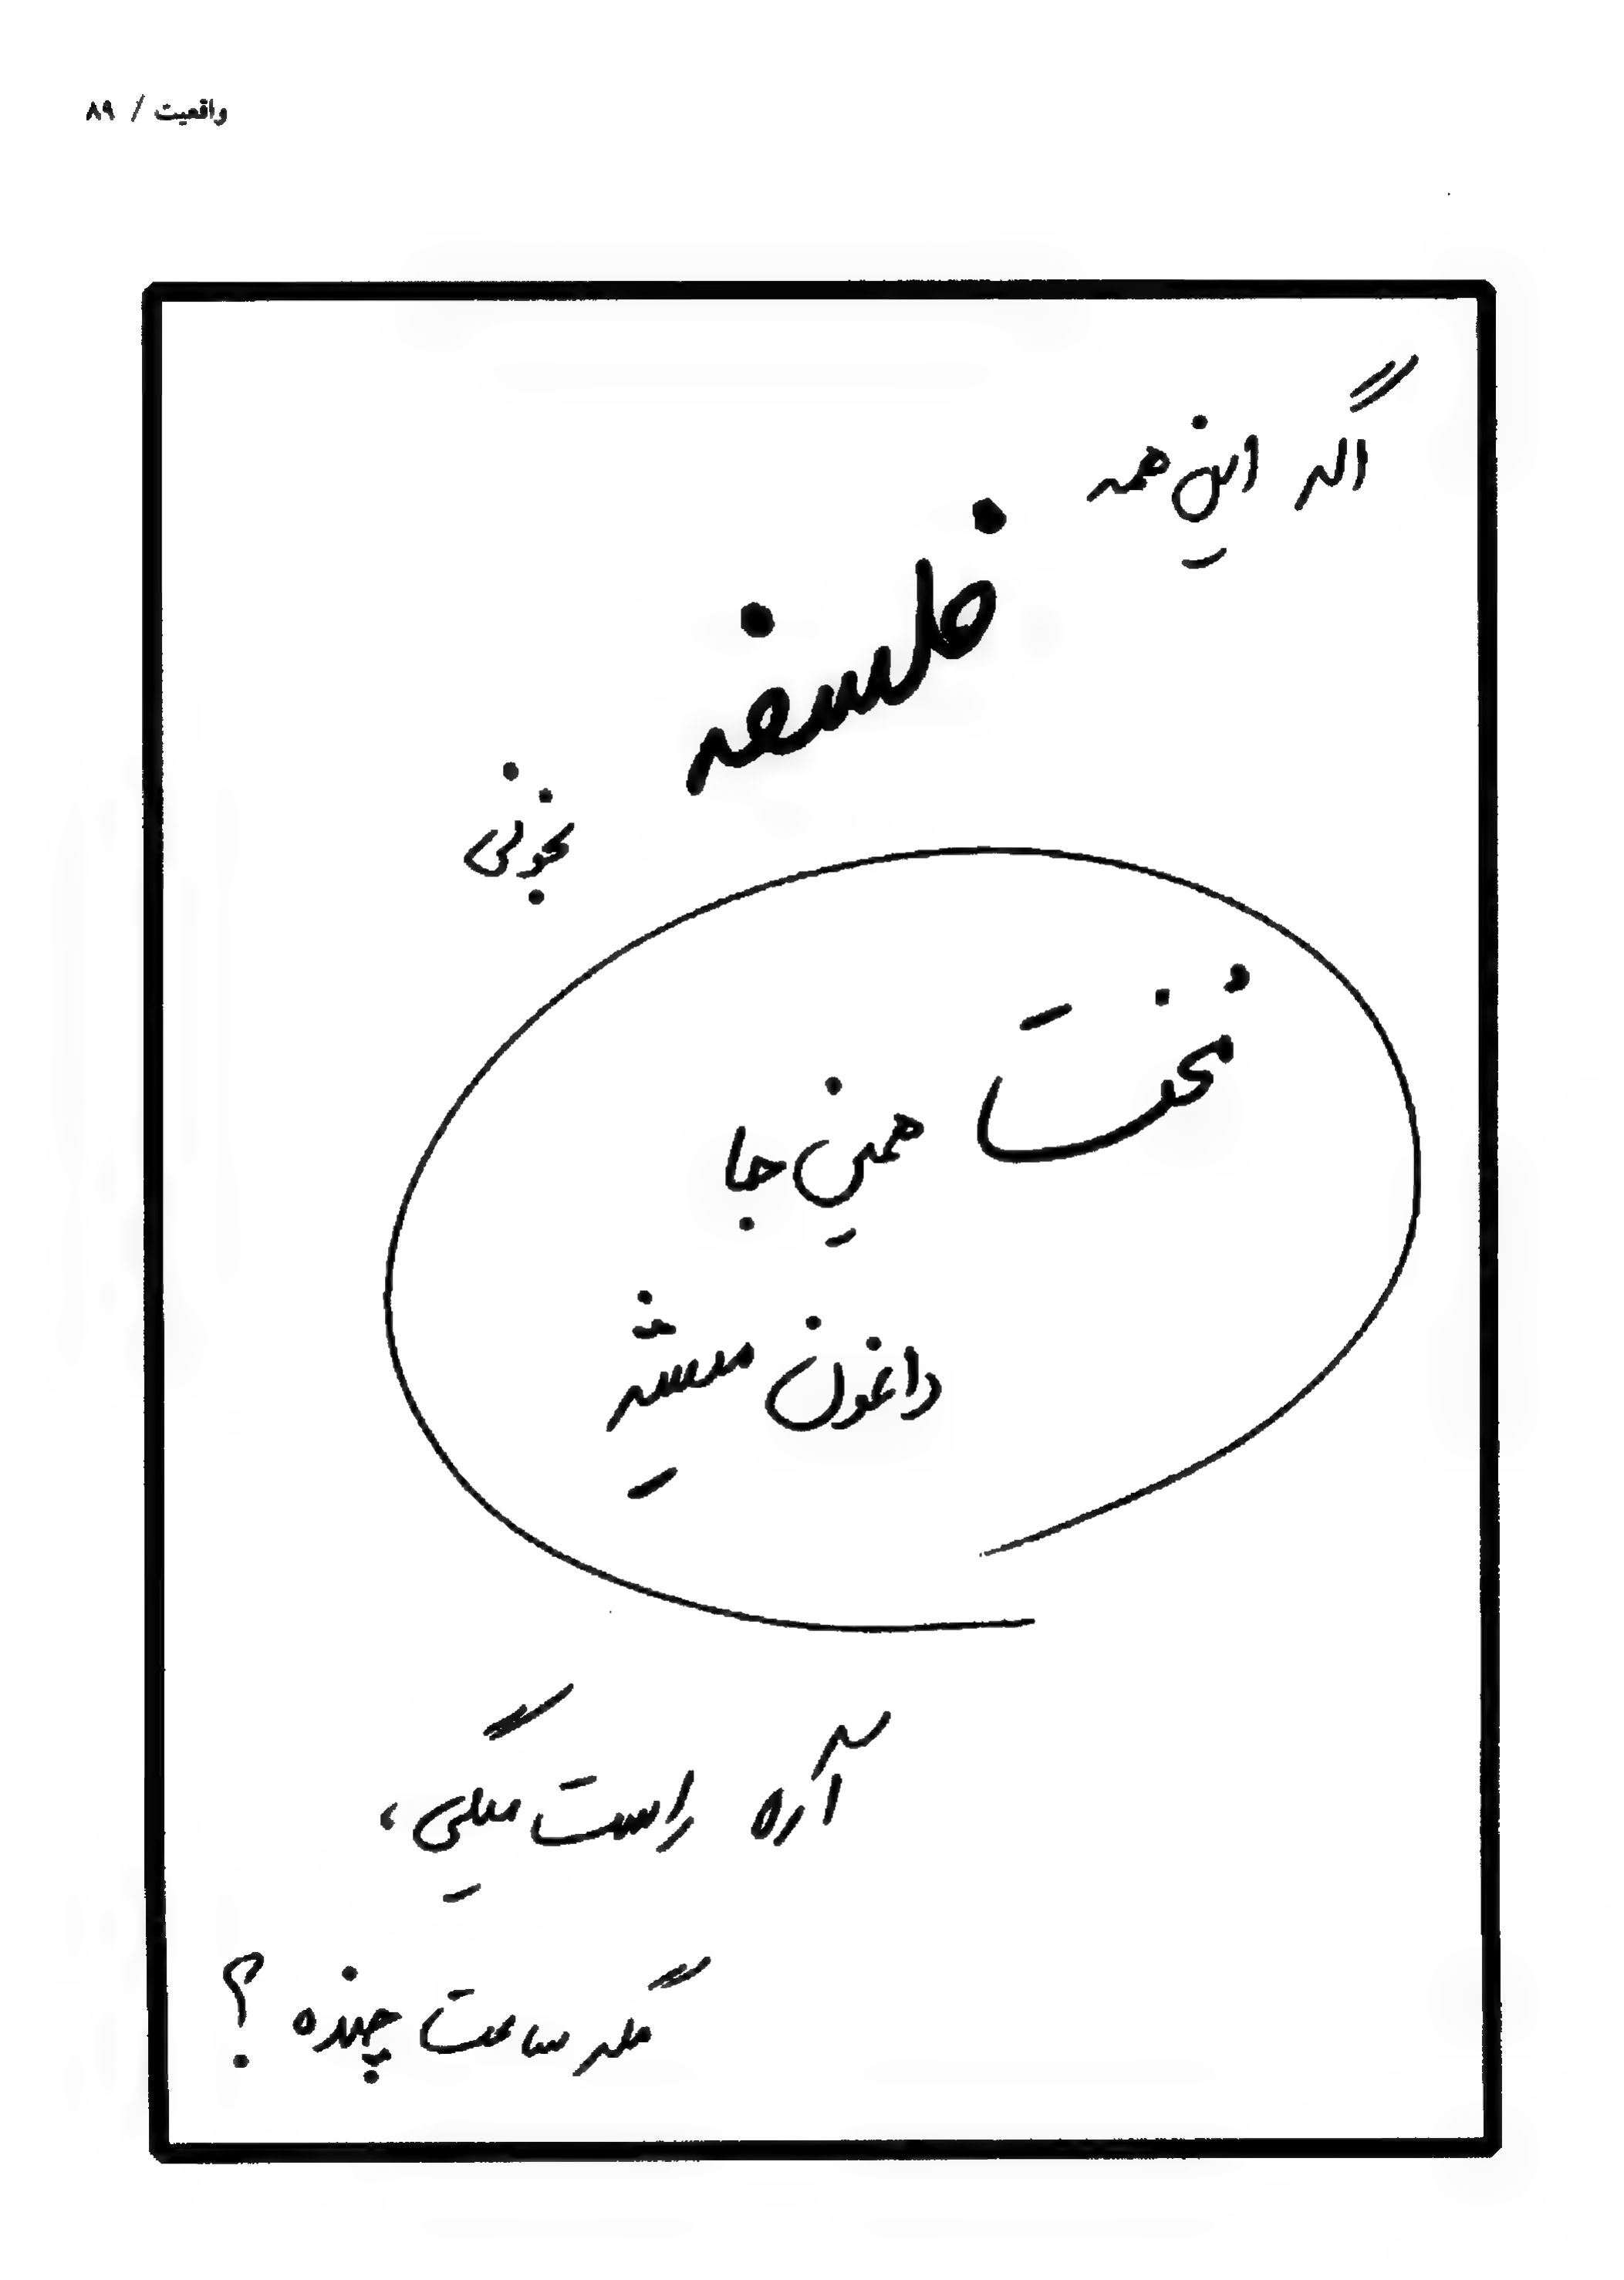 واقعیت / ۸۹
اگه این همه
فلسفه
بخونی
مُخت
همین جا
داغون میشه
آره راست میگی،
مگه ساعت چنده ؟